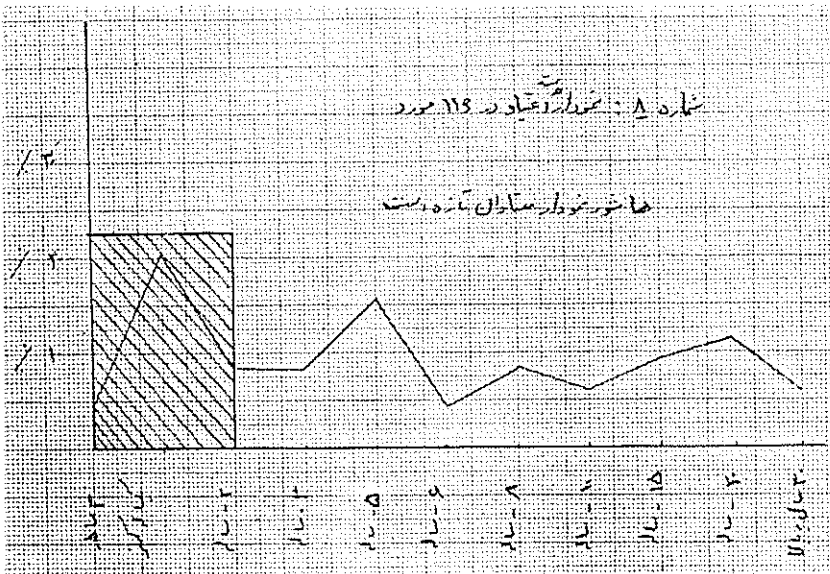 شماره ۸ : نمودار مدت اعتیاد در ۱۱۶ مورد
هاشور نمودار معتادان تازه است
٪ ۳
٪ ۲
٪ ۱
۳ ماه
یکسال
۲ - سال
۳ - سال
۵ - سال
۶ - سال
۸ - سال
۱۰ - سال
۱۵ - سال
۲۰ - سال
۳۰ سال ببالا